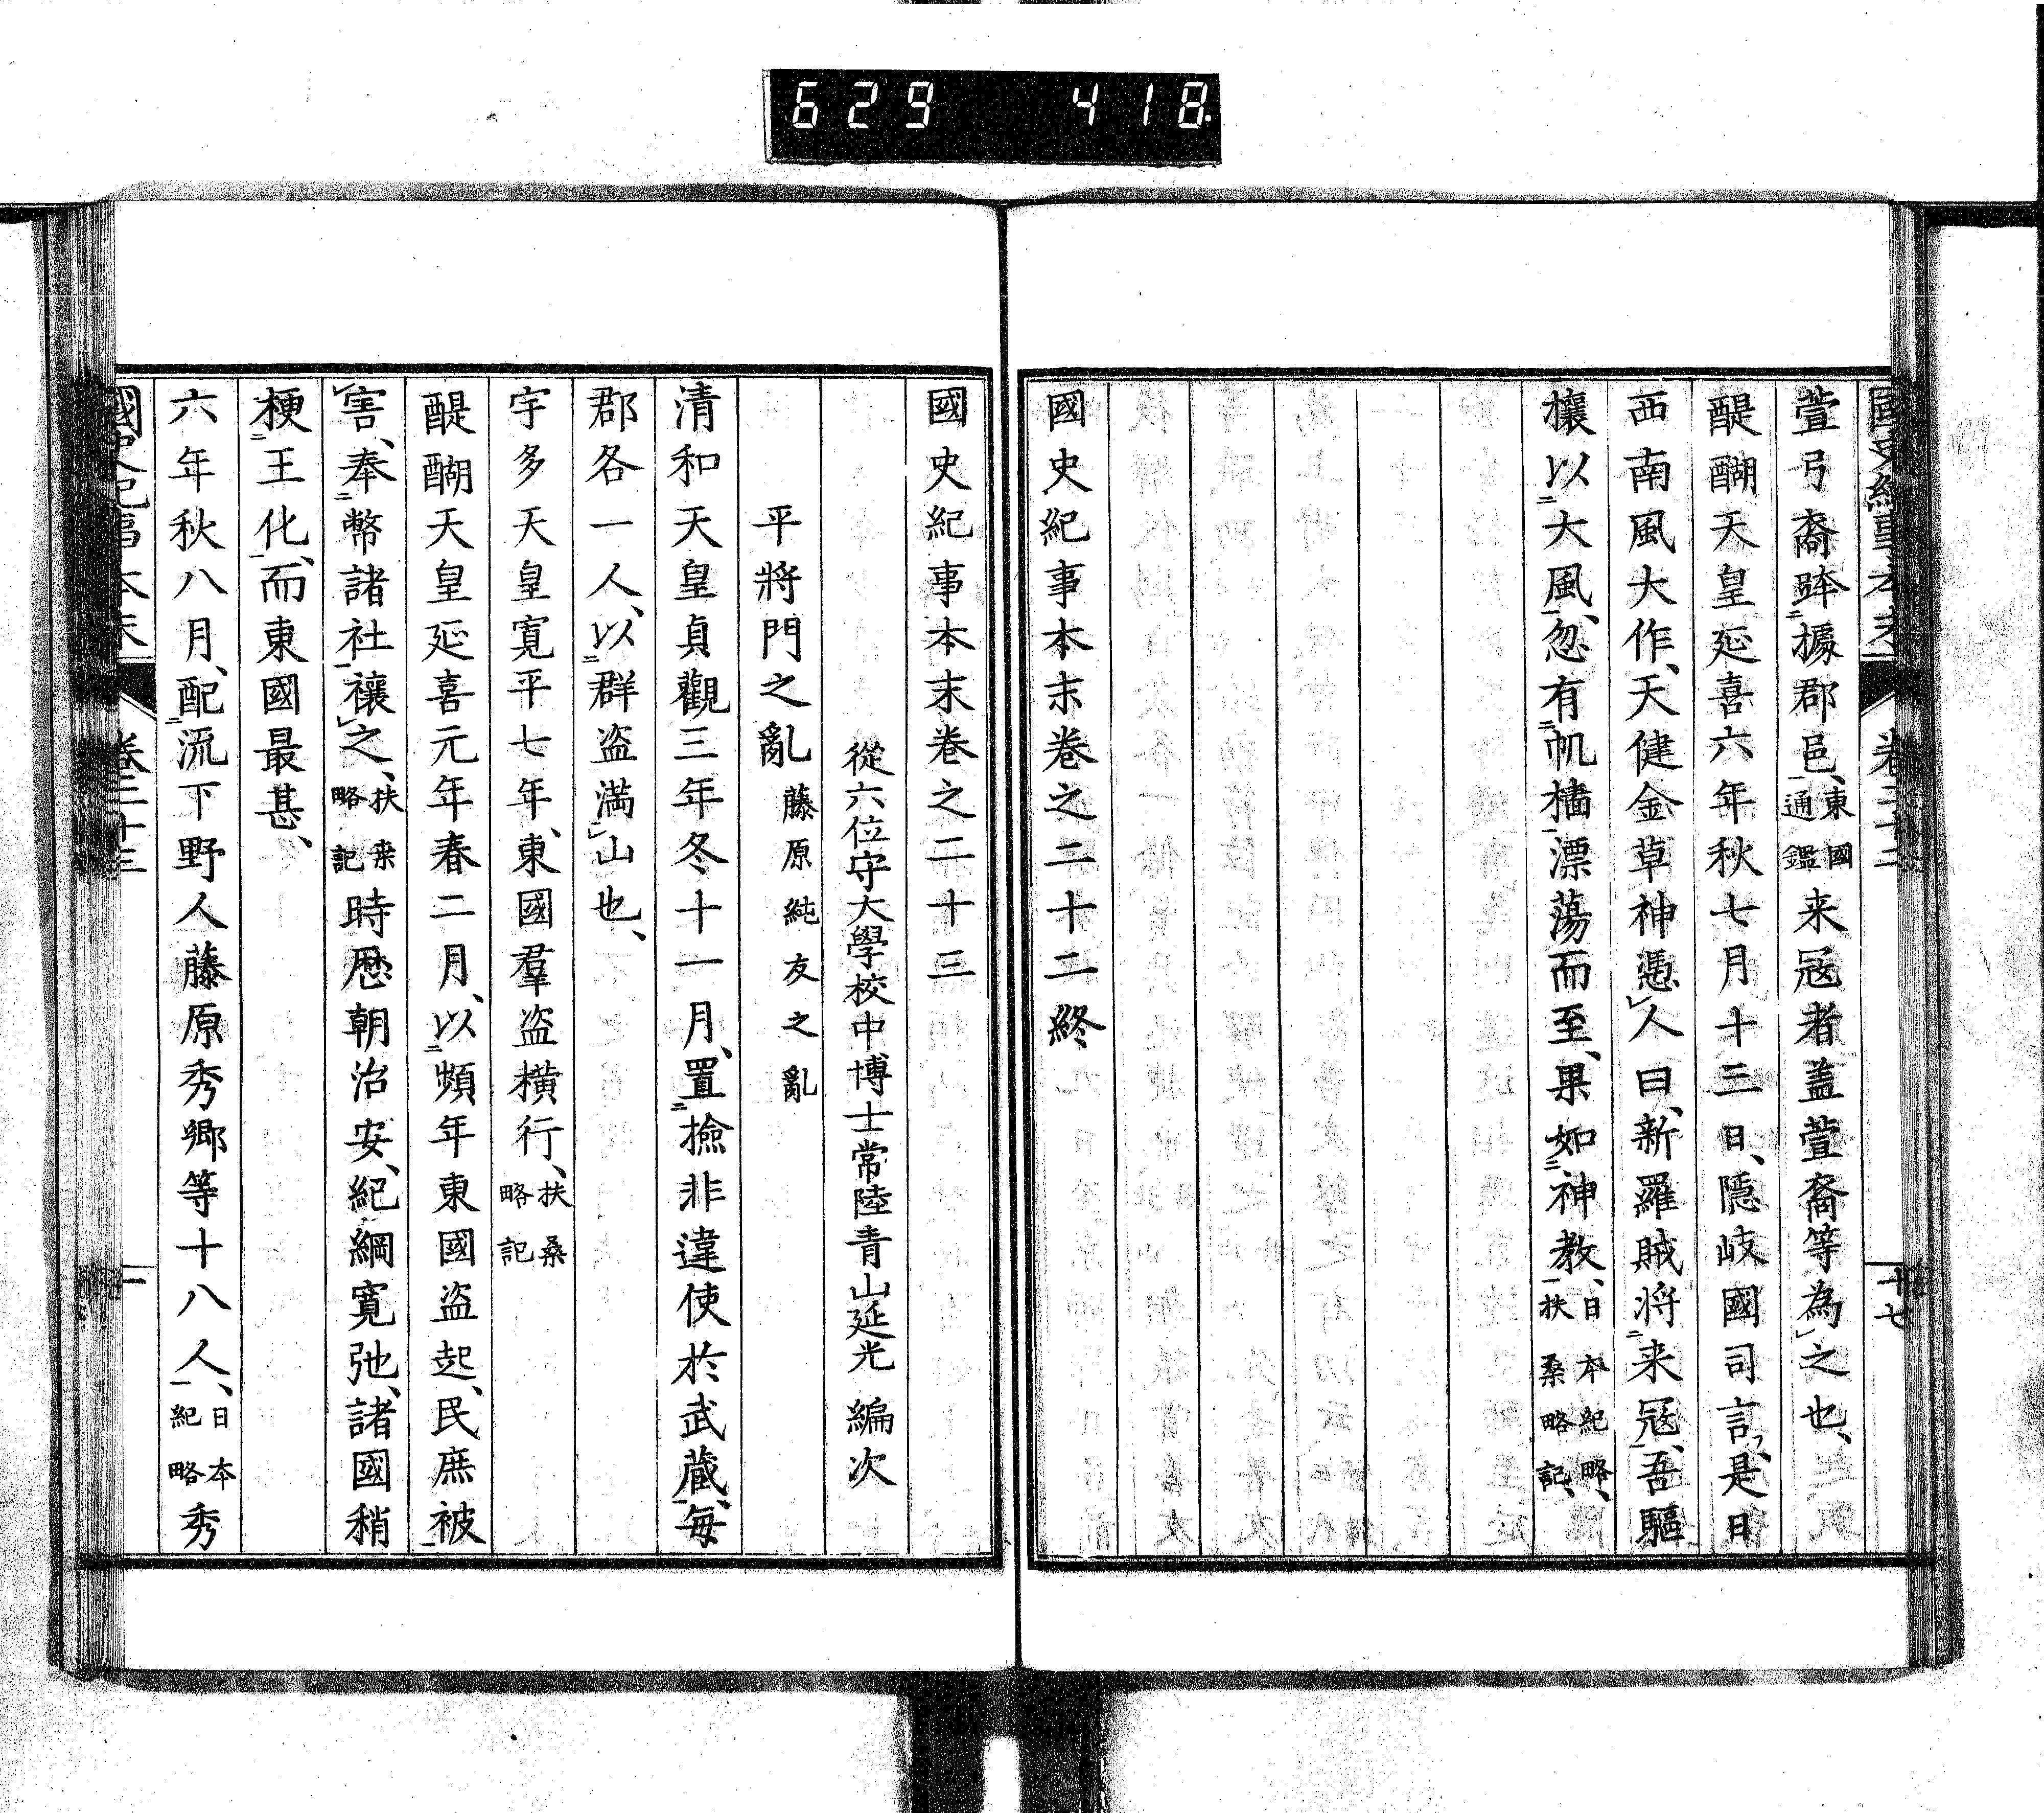 629 418
國史紀事本末 卷二十二 十七
萱弓裔跸據郡邑、東國通鑑来冦者蓋萱裔等為之也、
醍醐天皇延喜六年秋七月十三日、隠岐國司言、是日
西南風大作、天健金草神憑人曰、新羅賊将来冦、吾驅
攘以大風、忽有帆檣漂蕩而至、果如神教、日本紀略、扶桑略記、
國史紀事本末卷之二十二終
國史紀事本末卷之二十三
從六位守大學校中博士常陸青山延光 編次
平將門之亂 藤原純友之亂
清和天皇貞觀三年冬十一月、置撿非違使於武蔵、毎
郡各一人、以群盗満山也、
宇多天皇寛平七年、東國羣盗横行、扶桑略記
醍醐天皇延喜元年春二月、以頻年東國盗起、民庶被
害、奉幣諸社禳之、扶桑略記時歴朝治安、紀綱寛弛、諸國稍
梗王化、而東國最甚、
六年秋八月、配流下野人藤原秀郷等十八人、日本紀略秀
國史紀事本末 卷二十三 一